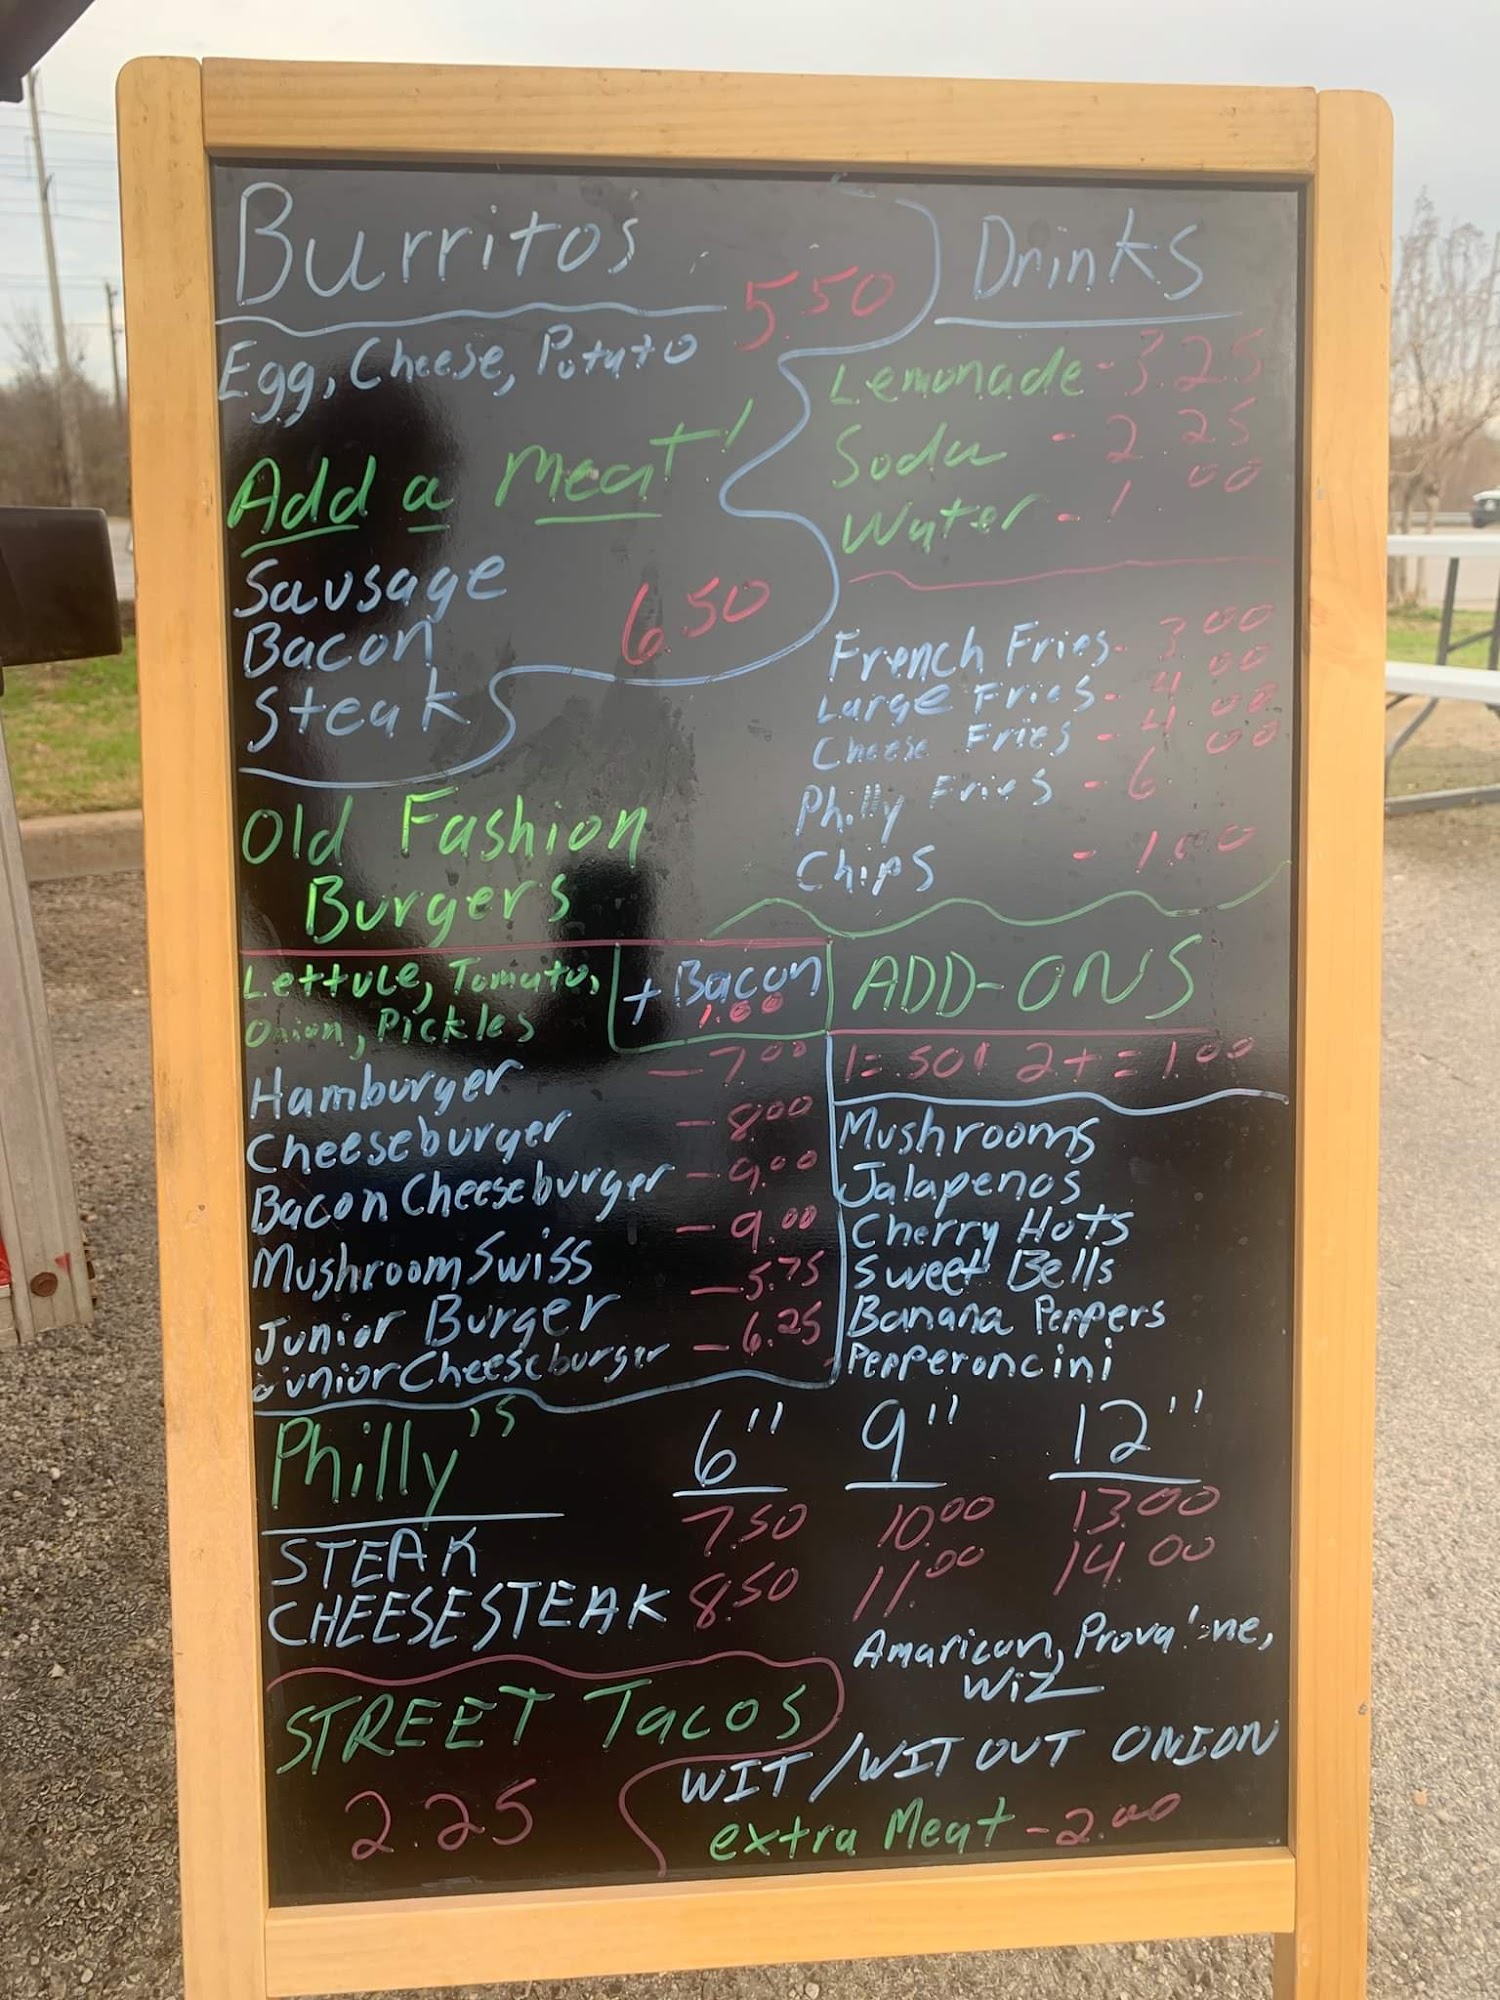 Burritos 5.50
Egg, Cheese, Potato
Add a meat!
Sausage
Bacon 6.50
Steak
Drinks
Lemonade - 3.25
Soda - 2.25
Water - 1.00
French Fries - 3.00
Large Fries - 4.00
Cheese Fries - 4.00
Philly Fries - 6.00
Chips - 1.00
Old Fashion
Burgers
Lettuce, Tomato,
Onion, Pickles
+ Bacon
1.00
Hamburger - 7.00
Cheeseburger - 8.00
Bacon Cheeseburger - 9.00
Mushroom Swiss - 9.00
Junior Burger - 5.75
Junior Cheeseburger - 6.25
ADD-ONS
1=.50¢ 2+=1.00
Mushrooms
Jalapenos
Cherry Hots
Sweet Bells
Banana Peppers
Pepperoncini
Philly's 6" 9" 12"
STEAK 7.50 10.00 13.00
CHEESESTEAK 8.50 11.00 14.00
Amarican, Provalone,
Wiz
WIT/WIT OUT ONION
extra Meat - 2.00
STREET Tacos
2.25